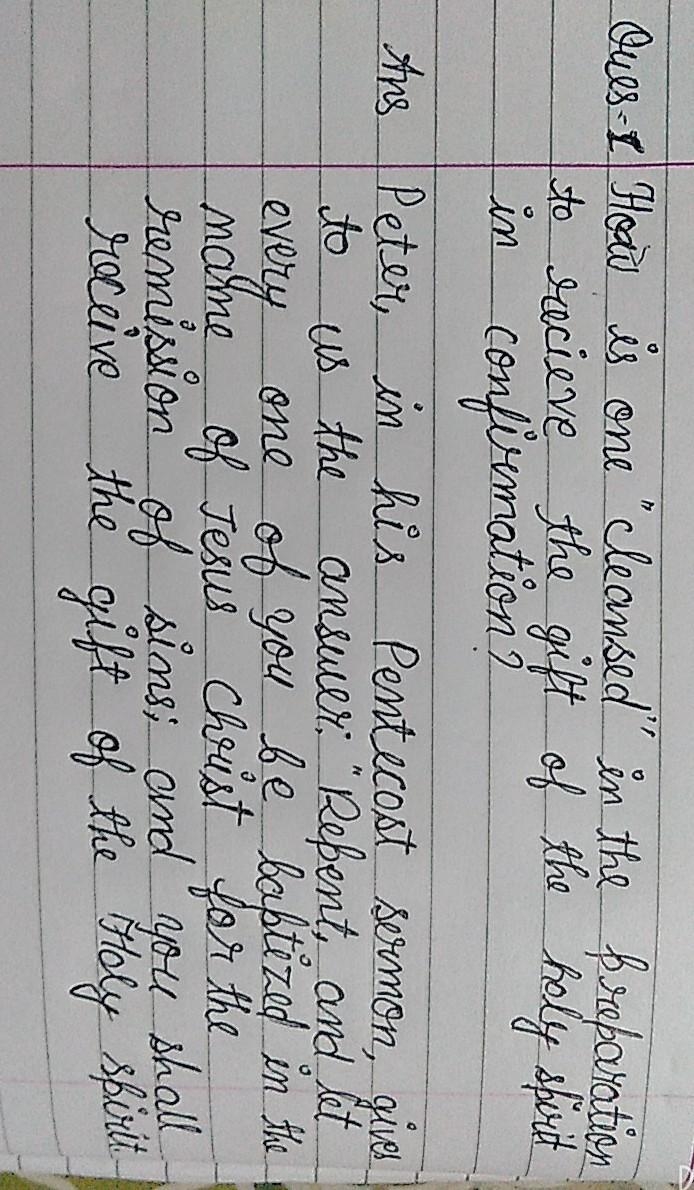 Ques-1 How is one "cleansed" in the preparation
to recieve the gift of the holy spirit
in confirmation?
Ans Peter, in his Pentecost sermon, gives
to us the answer: "Repent, and let
every one of you be baptized in the
name of Jesus Christ for the
remission of sins; and you shall
receive the gift of the Holy spirit